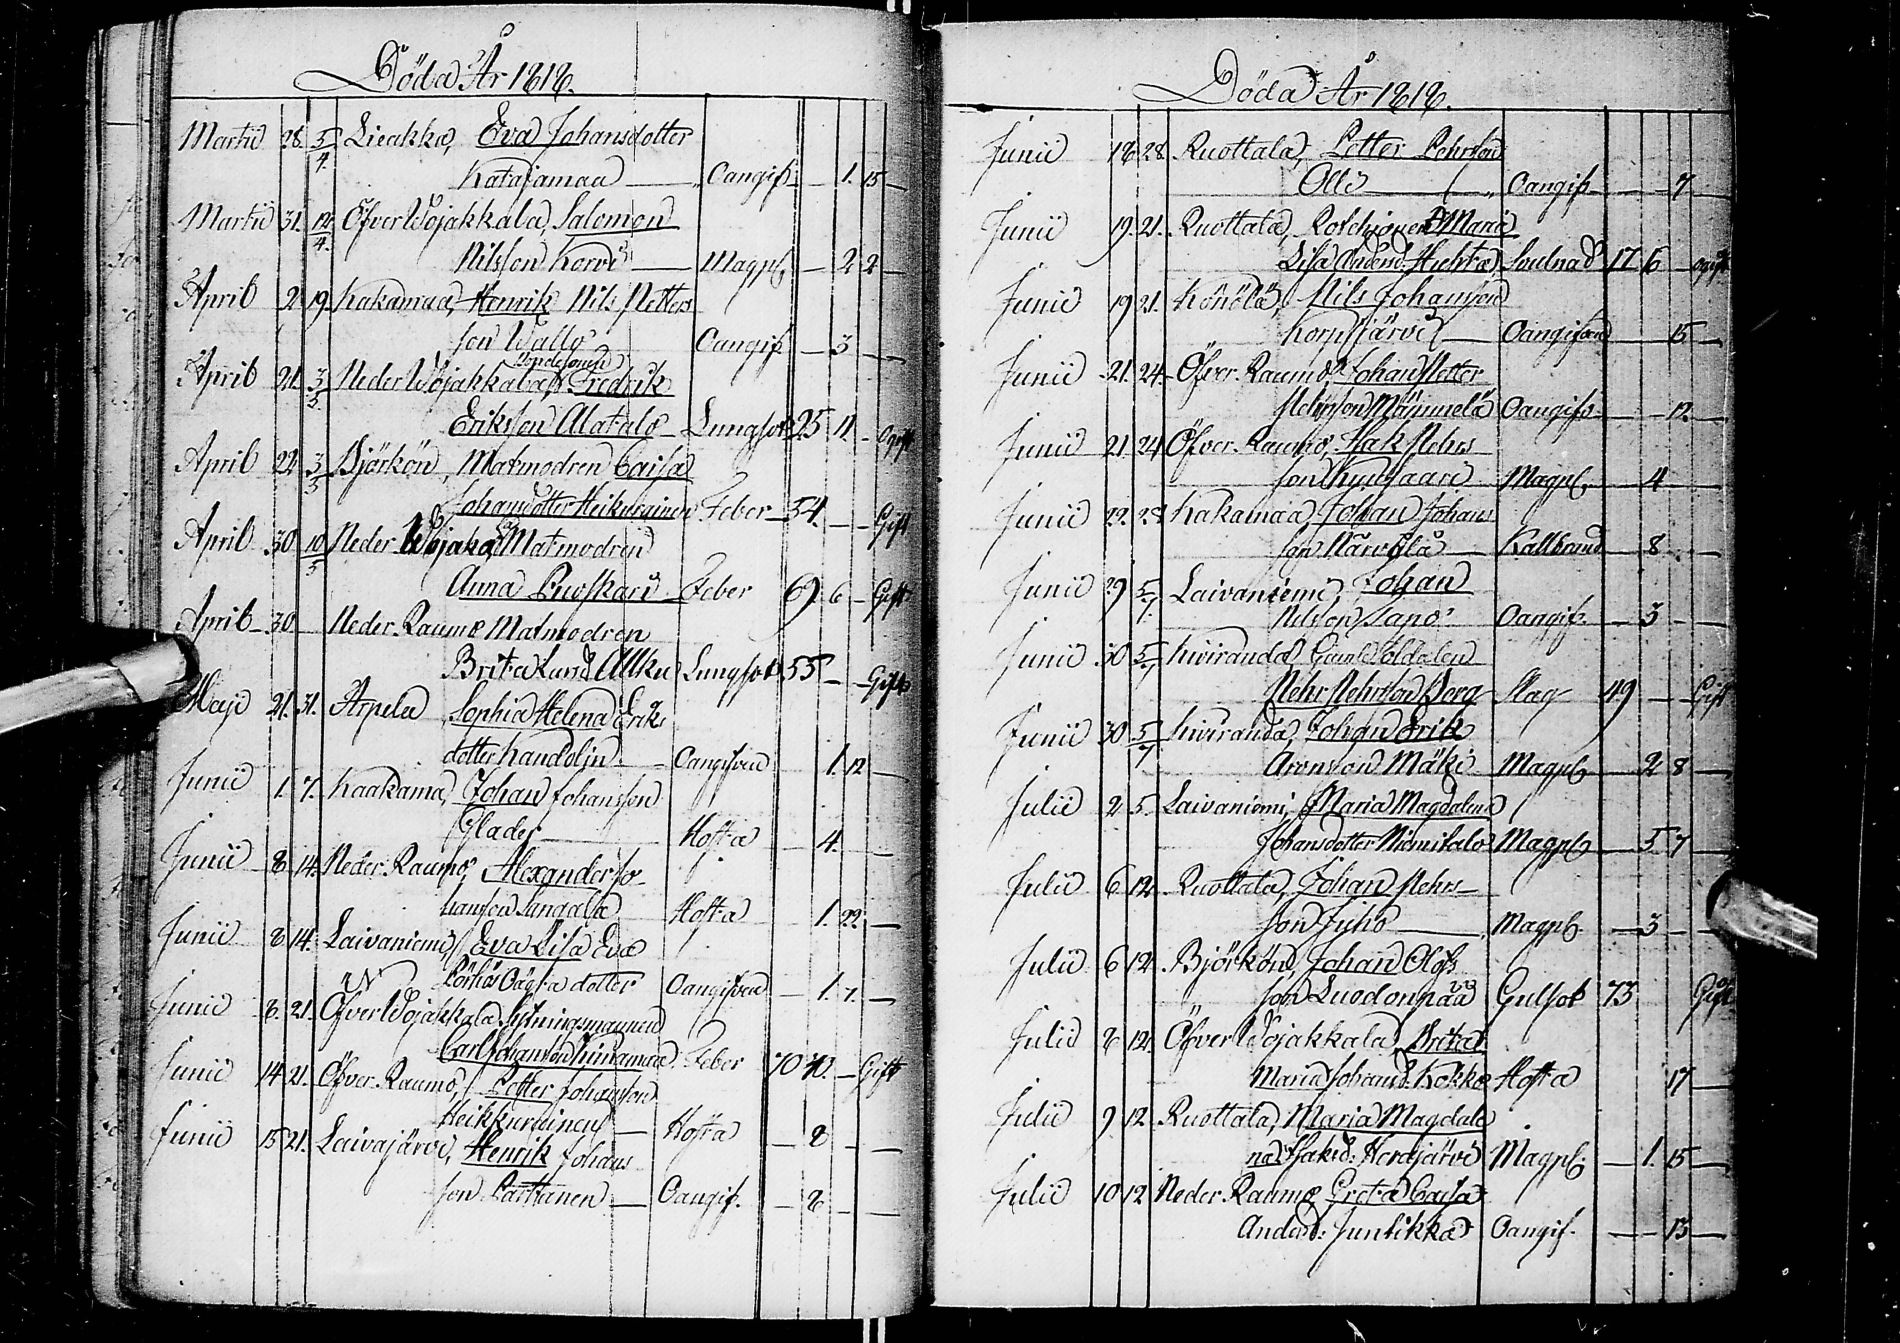 Döda År 1818.
Martii 28 5/4. Lieakka, Eva Johansdotter
Katajamaa — Oangif. — 1. 15 —
Martii 31. 12/4. ÖfverWojakkala, Salomon
Nilsson Korvi — Magpl. — 2 2 —
April 2 19. Kakamaa, Henrik Nils Petters
son Wallo Oangif. — 3 — —
April 21. 3/5 Neder Wojakkala, Fredrik
Eriksson Alatalo — Lungsot 25 11 — Ogift
April 22 3/5 Björkön, Matmodren Caisa
Johansdotter Heikurainen Feber — 54. — — Gift
April 30 10/5 Neder Wojaka Matmodren
Anna Ruoskari — Feber 69 6 — Gift
April 30 Neder Raumo Matmodren
Brita Lund Allku Lungsot 55 — — Gift
Maji 21. 31. Arpela Sophia Helena Eriks
dotter Kandolin — Oangifven 1. 12 —
Junii 1. 7. Kaakama, Johan Johansson
Glader — Hosta — 4. — —
Junii 8 14. Neder Raumo, Alexander Jo-
hansson Hosta 1. 22. —
Junii 8 14. Laivaniemi, Eva Lisa Eva
dotter Oangifven — 1. 7. —
Junii 8. 21. ÖfverWojakkala, Sytningsmannen
Carl Johansson Kinamaa Feber 70 10. — Gift
Junii 14 21. Öfver Raumo, Petter Johansson
Heikkurainen — Hosta — 8 — —
Junii 15 21. Laivajärvi, Henrik Johans
son Parttanen — Oangif. — 8 — —
Döda År 1818.
Junii 18 28 Ruottala, Petter Pehrsson
Olli — Oangif — — 7 —
Junii 19. 21. Ruottala, Maria
Lisa Andersd. Huhta 17 6 — ogift
Junii 19 21. Könölä, Nils Johansson
Korpijärvi — Oangifven — 15 —
Junii 21. 24 Öfver Raumo, Johan Petter
Pehrsson Mämmelä Oangif. — — 12. —
Junii 21 24 Öfver Raumo, Isak Pehrs
son Magpl. — 4 —
Junii 22. 28 Kakamaa, Johan Johans
son Närvälä — Kallbrand — 8 — —
Junii 29 5/7. Laivaniemi, Johan
Nilsson Oangif. — 3 — —
Junii 30 5/7 Kiviranda,
Pehr Pehrsson Berg Slag 49 — — Gift
Junii 30 5/7 Kiviranda, Johan Erik
Aronsson Mäki — Magpl. — 2 8 —
Julii 2 5. Laivaniemi, Maria Magdalena
Johansdotter Niemitalo Magpl. — 5 7 —
Julii 6 12. Ruottala, Johan Pehrs-
son Juho — Magpl. — 3 — —
Julii 6 12. Björkön, Johan Olofs
son Luodonpää Gulsot 73 Gift
Julii 8 12. Öfver Wojakkala, Brita
Maria Johansd. Kokko Hosta 17 —
Julii 9. 12. Ruottala, Maria Magdale
na Isaksd: Hordjärvi Magpl. — 1. 15 —
Julii 10 12 Neder Raumo Greta Caisa
Andersd: Juntikka Oangif. — — 13 —